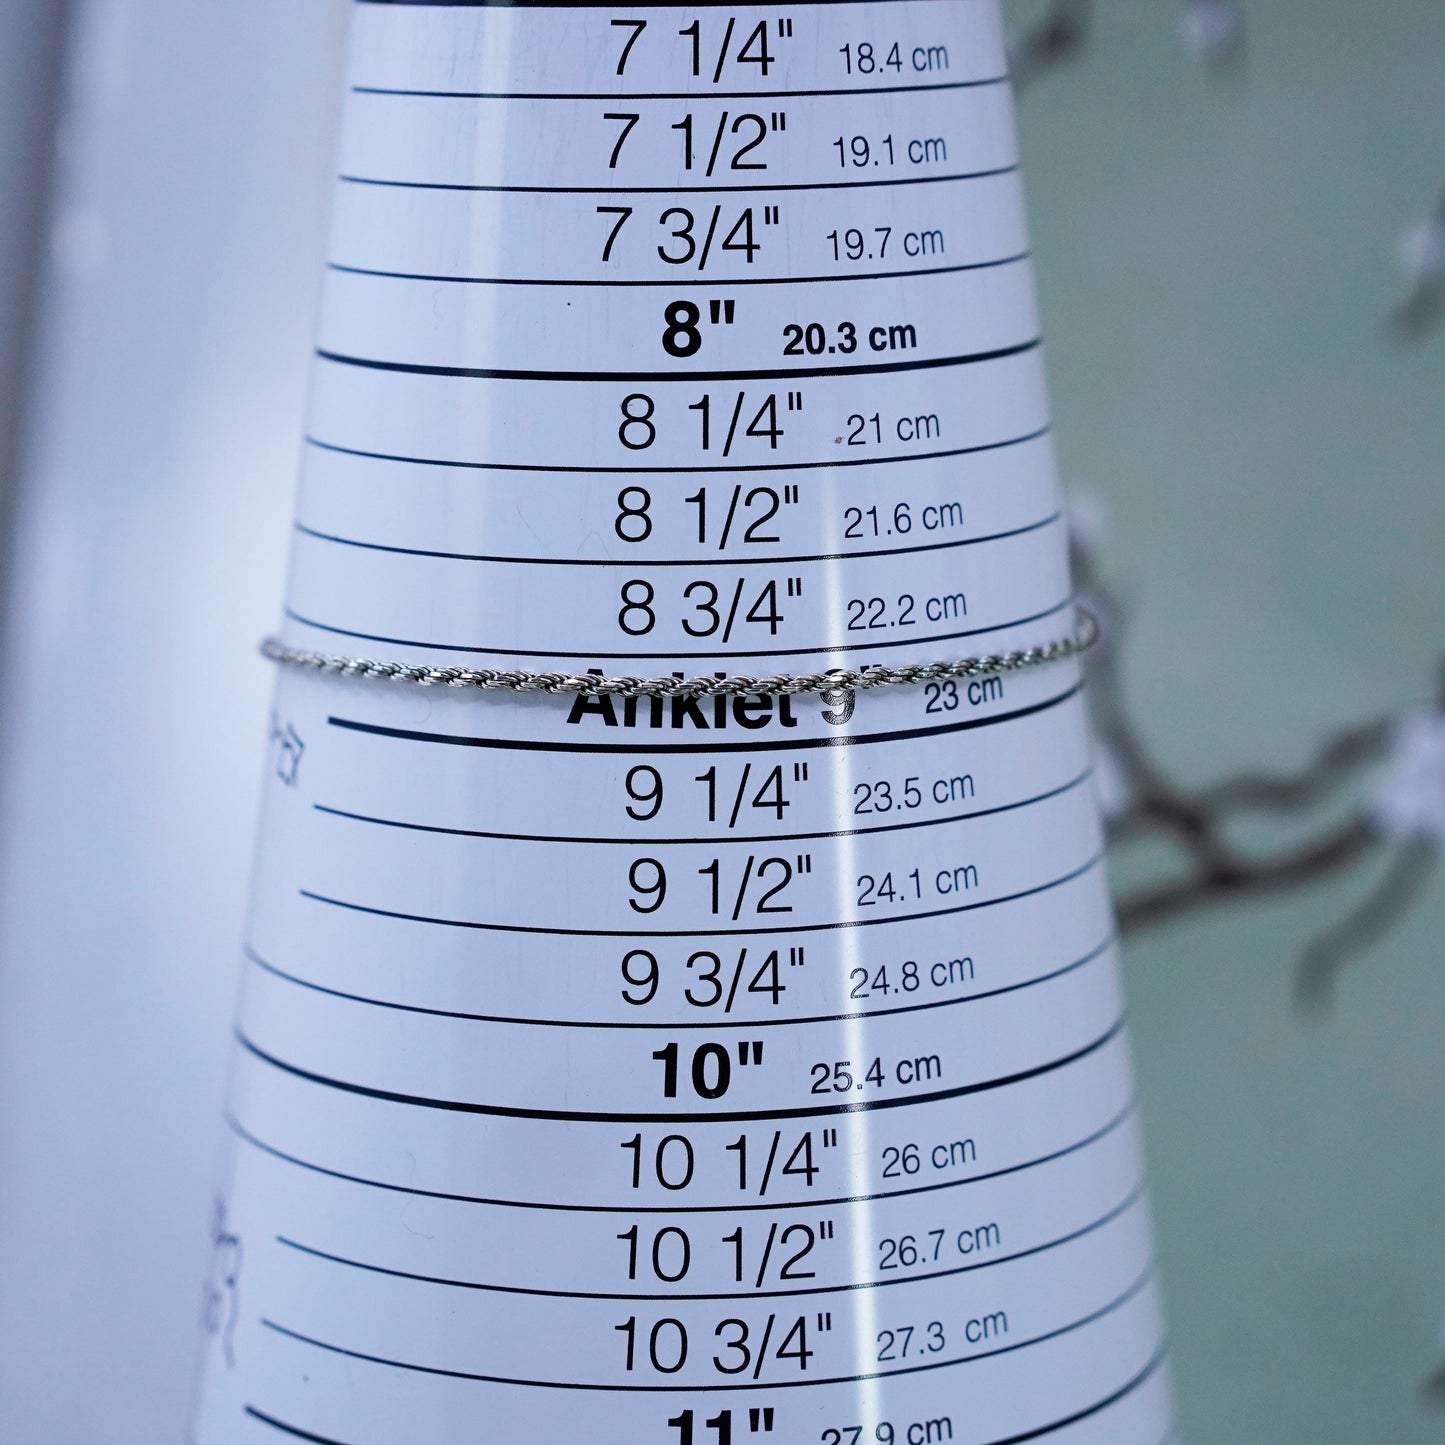 7 1/4" 18.4 cm
7 1/2" 19.1 cm
7 3/4" 19.7 cm
8" 20.3 cm
8 1/4" 21 cm
8 1/2" 21.6 cm
8 3/4" 22.2 cm
Anklet 9" 23 cm
9 1/4" 23.5 cm
9 1/2" 24.1 cm
9 3/4" 24.8 cm
10" 25.4 cm
10 1/4" 26 cm
10 1/2" 26.7 cm
10 3/4" 27.3 cm
11" 27.9 cm